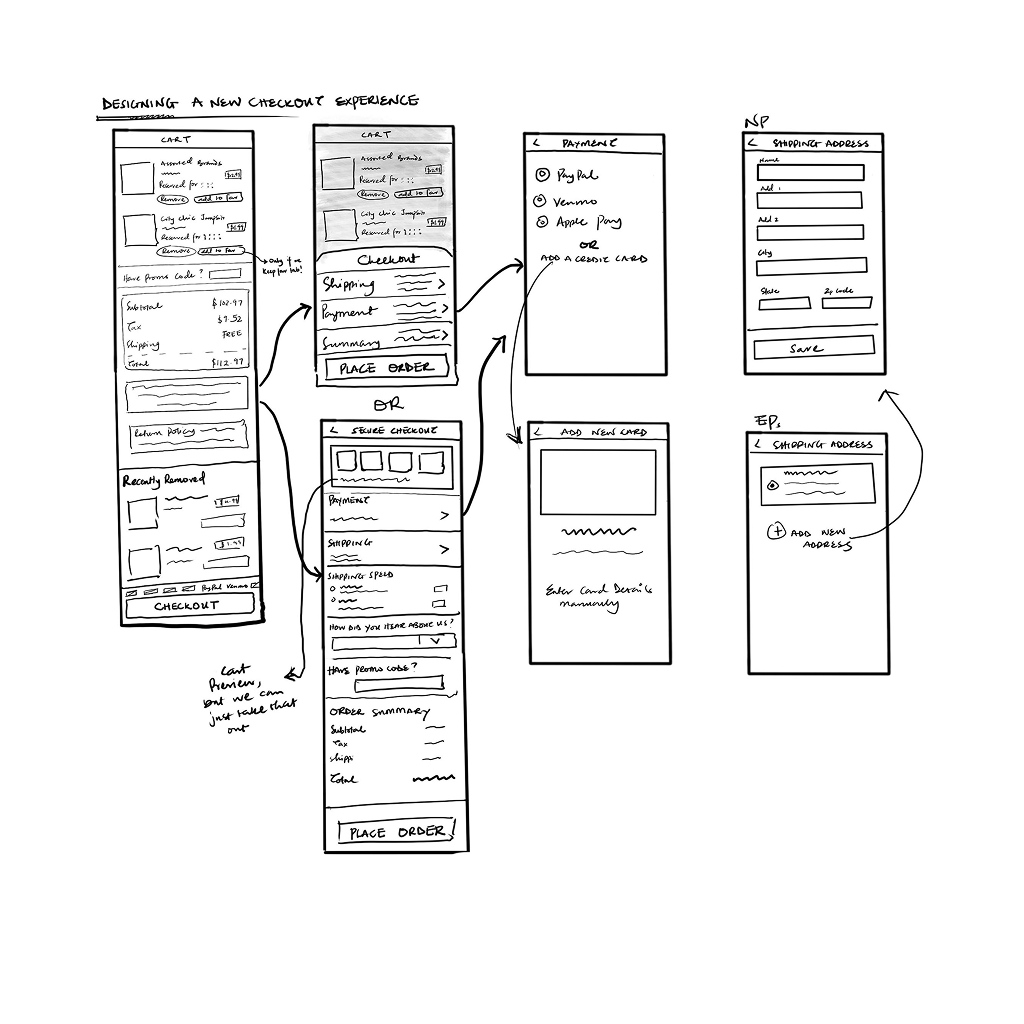 DESIGNING A NEW CHECKOUT EXPERIENCE
CART
Assorted Brands
Reserved for : : :
Remove
Add to Fav
City Chic Jumpsuit
Reserved for : : : :
Remove
Add to Fav
Only if we
keep fav tab!
Have Promo Code?
Subtotal $102.97
Tax $7.52
Shipping FREE
Total $112.97
Return Policy
Recently Removed
PayPal Venmo
CHECKOUT
CART
Assorted Brands
Reserved for : : :
Remove
Add to Fav
City Chic Jumpsuit
Reserved for : : : :
Checkout
Shipping
Payment
Summary
PLACE ORDER
OR
< SECURE CHECKOUT
PAYMENT >
SHIPPING >
SHIPPING SPEED
HOW DID YOU HEAR ABOUT US?
HAVE PROMO CODE?
ORDER SUMMARY
Subtotal
Tax
Shippi
Total
PLACE ORDER
Cart
Preview,
but we can
just take that
out
< PAYMENT
PayPal
Venmo
Apple Pay
OR
ADD A CREDIT CARD
< ADD NEW CARD
Enter Card Details
manually
NP
< SHIPPING ADDRESS
Name
Add 1
Add 2
City
State
Zip code
Save
EP.
< SHIPPING ADDRESS
+ ADD NEW
ADDRESS